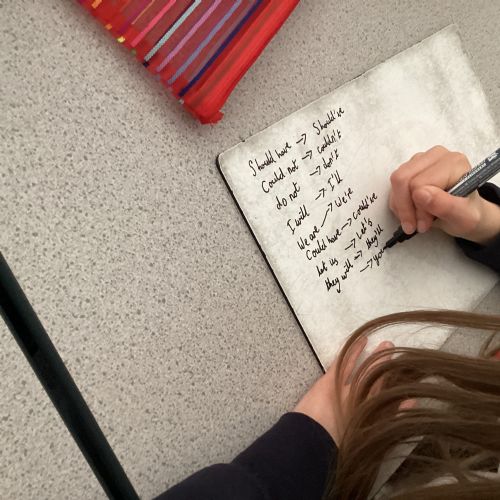 Should have → Should've
Could not → couldn't
do not → don't
I will → I'll
We are → We're
Could have → could've
Let us → Let's
they will → they'll
→ you